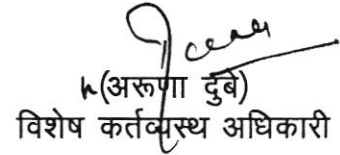 (अरूणा दुबे)
विशेष कर्तव्यस्थ अधिकारी